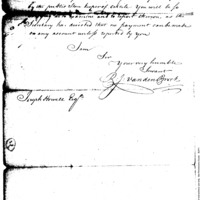 by the public Store keeper of which You will be so
to examine and to report thereon, as the
Secretary has directed that no payment can be made
on any account unless reported by you
I am
Sir
Your very humble
Servant
Joseph Howell Esqr.